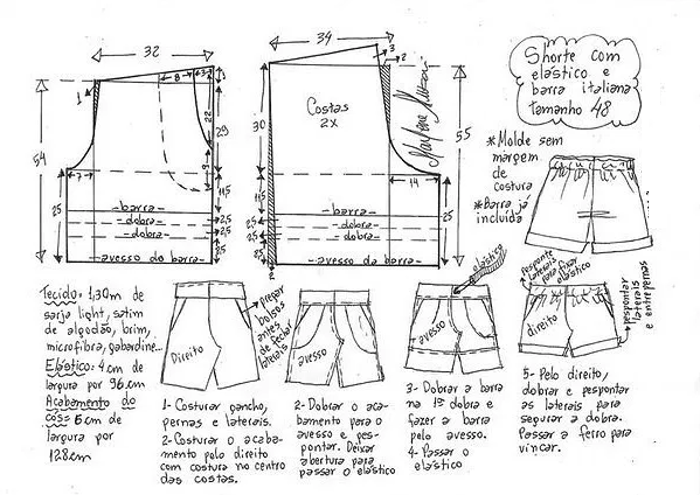 Shorte com
elástico e
barra italiana
tamanho 48
*Molde sem
margem
de
costura
*Barra já
incluída
32
8
3
1
22
29
9
54
7
11,5
25
-barra-
-dobra-
-dobra-
-avesso da barra-
2,5
2,5
2,5
34
3
2
Costas
2x
30
55
14
11,5
25
25
-barra-
-dobra-
-dobra-
-avesso da barra-
2,5
2,5
2
Tecido: 1,30m de
sarja light, satim
de algodão, brim,
microfibra, gabardine...
Elástico: 4cm de
largura por 96cm
Acabamento do
cós: 6cm de
largura por
128cm
Direito
Pregar
bolsos
antes
de fechar
laterais
avesso
avesso
elástico
Pesponte
laterais
para fixar
elástico
direito
pespontar
laterais
e entrepernas
1- Costurar gancho,
pernas e laterais.
2- Costurar o acaba-
mento pelo direito
com costura no centro
das costas.
2- Dobrar o aca-
bamento para o
avesso e pes-
pontar. Deixar
abertura para
passar o elástico
3- Dobrar a barra
na 1ª dobra e
fazer a barra
pelo avesso.
4- Passar o
elástico
5- Pelo direito,
dobrar e pespontar
as laterais para
segurar a dobra.
Passar a ferro para
vincar.